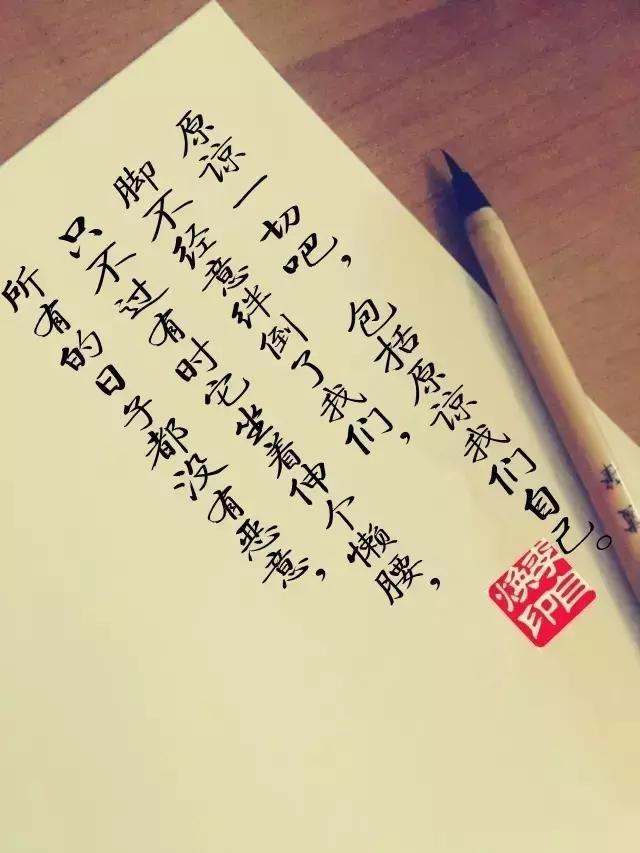 所有的日子都没有恶意，
只不过有时它坐着伸个懒腰，
脚不经意绊倒了我们，
原谅一切吧，包括原谅我们自己。